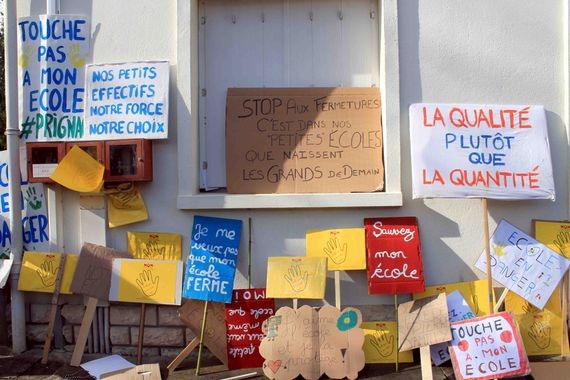 TOUCHE
PAS
A MON
ECOLE
#PRIGNA
NOS PETITS
EFFECTIFS
NOTRE FORCE
NOTRE CHOIX
STOP AUX FERMETURES
C'EST DANS NOS
"PETITES" ÉCOLES
QUE NAISSENT
LES GRANDS DE DEMAIN
LA QUALITÉ
PLUTÔT
QUE
LA QUANTITÉ
DANGER
Je ne
veux pas
que mon
école
FERME
Sauvez
mon
école
ECOLES
EN
DANGER
MOI
même
petite
école
TOUCHE PAS
A MON
ECOLE